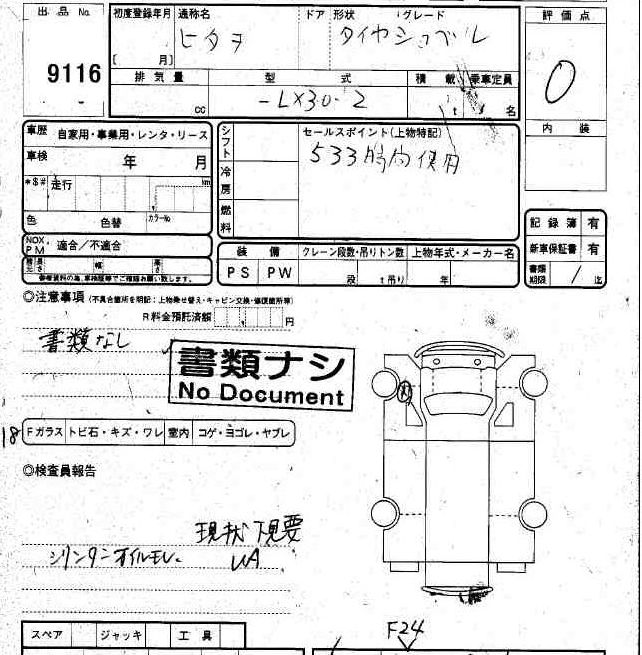 出品 No.
9116
初度登録年月 通称名 ドア 形状 グレード
[ 月] ヒタチ タイヤショベル
排気量 型式 積載 乗車定員
cc -LX30-2 t 名
評価点
0
内装
車歴 自家用・事業用・レンタ・リース
車検 年 月
*$# 走行 km
色 色替 カラーNo
NOX PM 適合／不適合
長さ 幅 高さ
シフト
冷房
燃料
セールスポイント(上物特記)
533時間使用
装備 クレーン段数・吊りトン数 上物年式・メーカー名
PS PW 段 t吊り 年
記録簿 有
新車保証書 有
書類期限 / 迄
◎注意事項 (不具合箇所を明記：上物乗せ替え・キャビン交換・修復箇所等)
R料金預託済額 円
書類なし
書類ナシ
No Document
18 Fガラス トビ石・キズ・ワレ 室内 コゲ・ヨゴレ・ヤブレ
◎検査員報告
現状下見要
シリンダーオイルモレ. UA
スペア ジャッキ 工具
F24